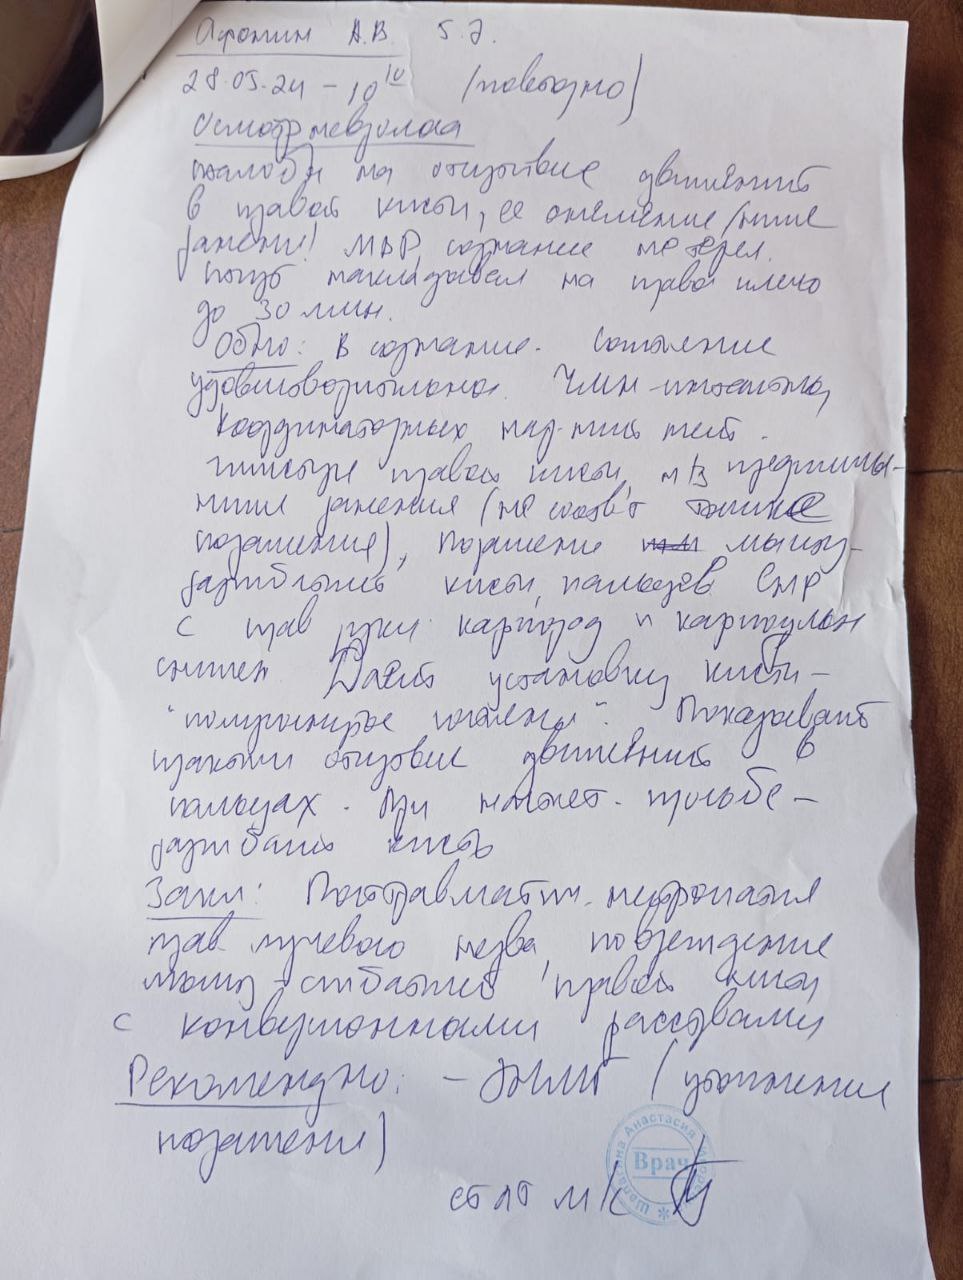 Афонин А.В. 5.Э.
28.05.24 - 10 10 (повторно)
Осмотр невролога
жалобы на отсутствие движений
в правой кисти, ее онемение /ниже
ранения! МВР, сознание не терял.
Жгут накладывал на правое плечо
до 30 мин.
Объно: В сознание. Состояние
удовлетворительное. ЧМН - интактны,
Координаторных нар-ний нет.
правой кисти, м/з
ния ранения (не соотв-т
поражения), поражение мышц-
разгибателей кисти, пальцев СПР
с прав руки карпорад и карпоульн
снижен Дает установку кисти -
Показывает
отсутствие движений в
пальцах. При просьбе -
разгибать кисть
Закл: Посттравматич. нейропатия
прав лучевого нерва, повреждение
мышц - сгибателей правой кисти
с конверсионными расствами
Рекомендно: - ЭНМГ (уточнение
поражения)
Врач
Анастасия